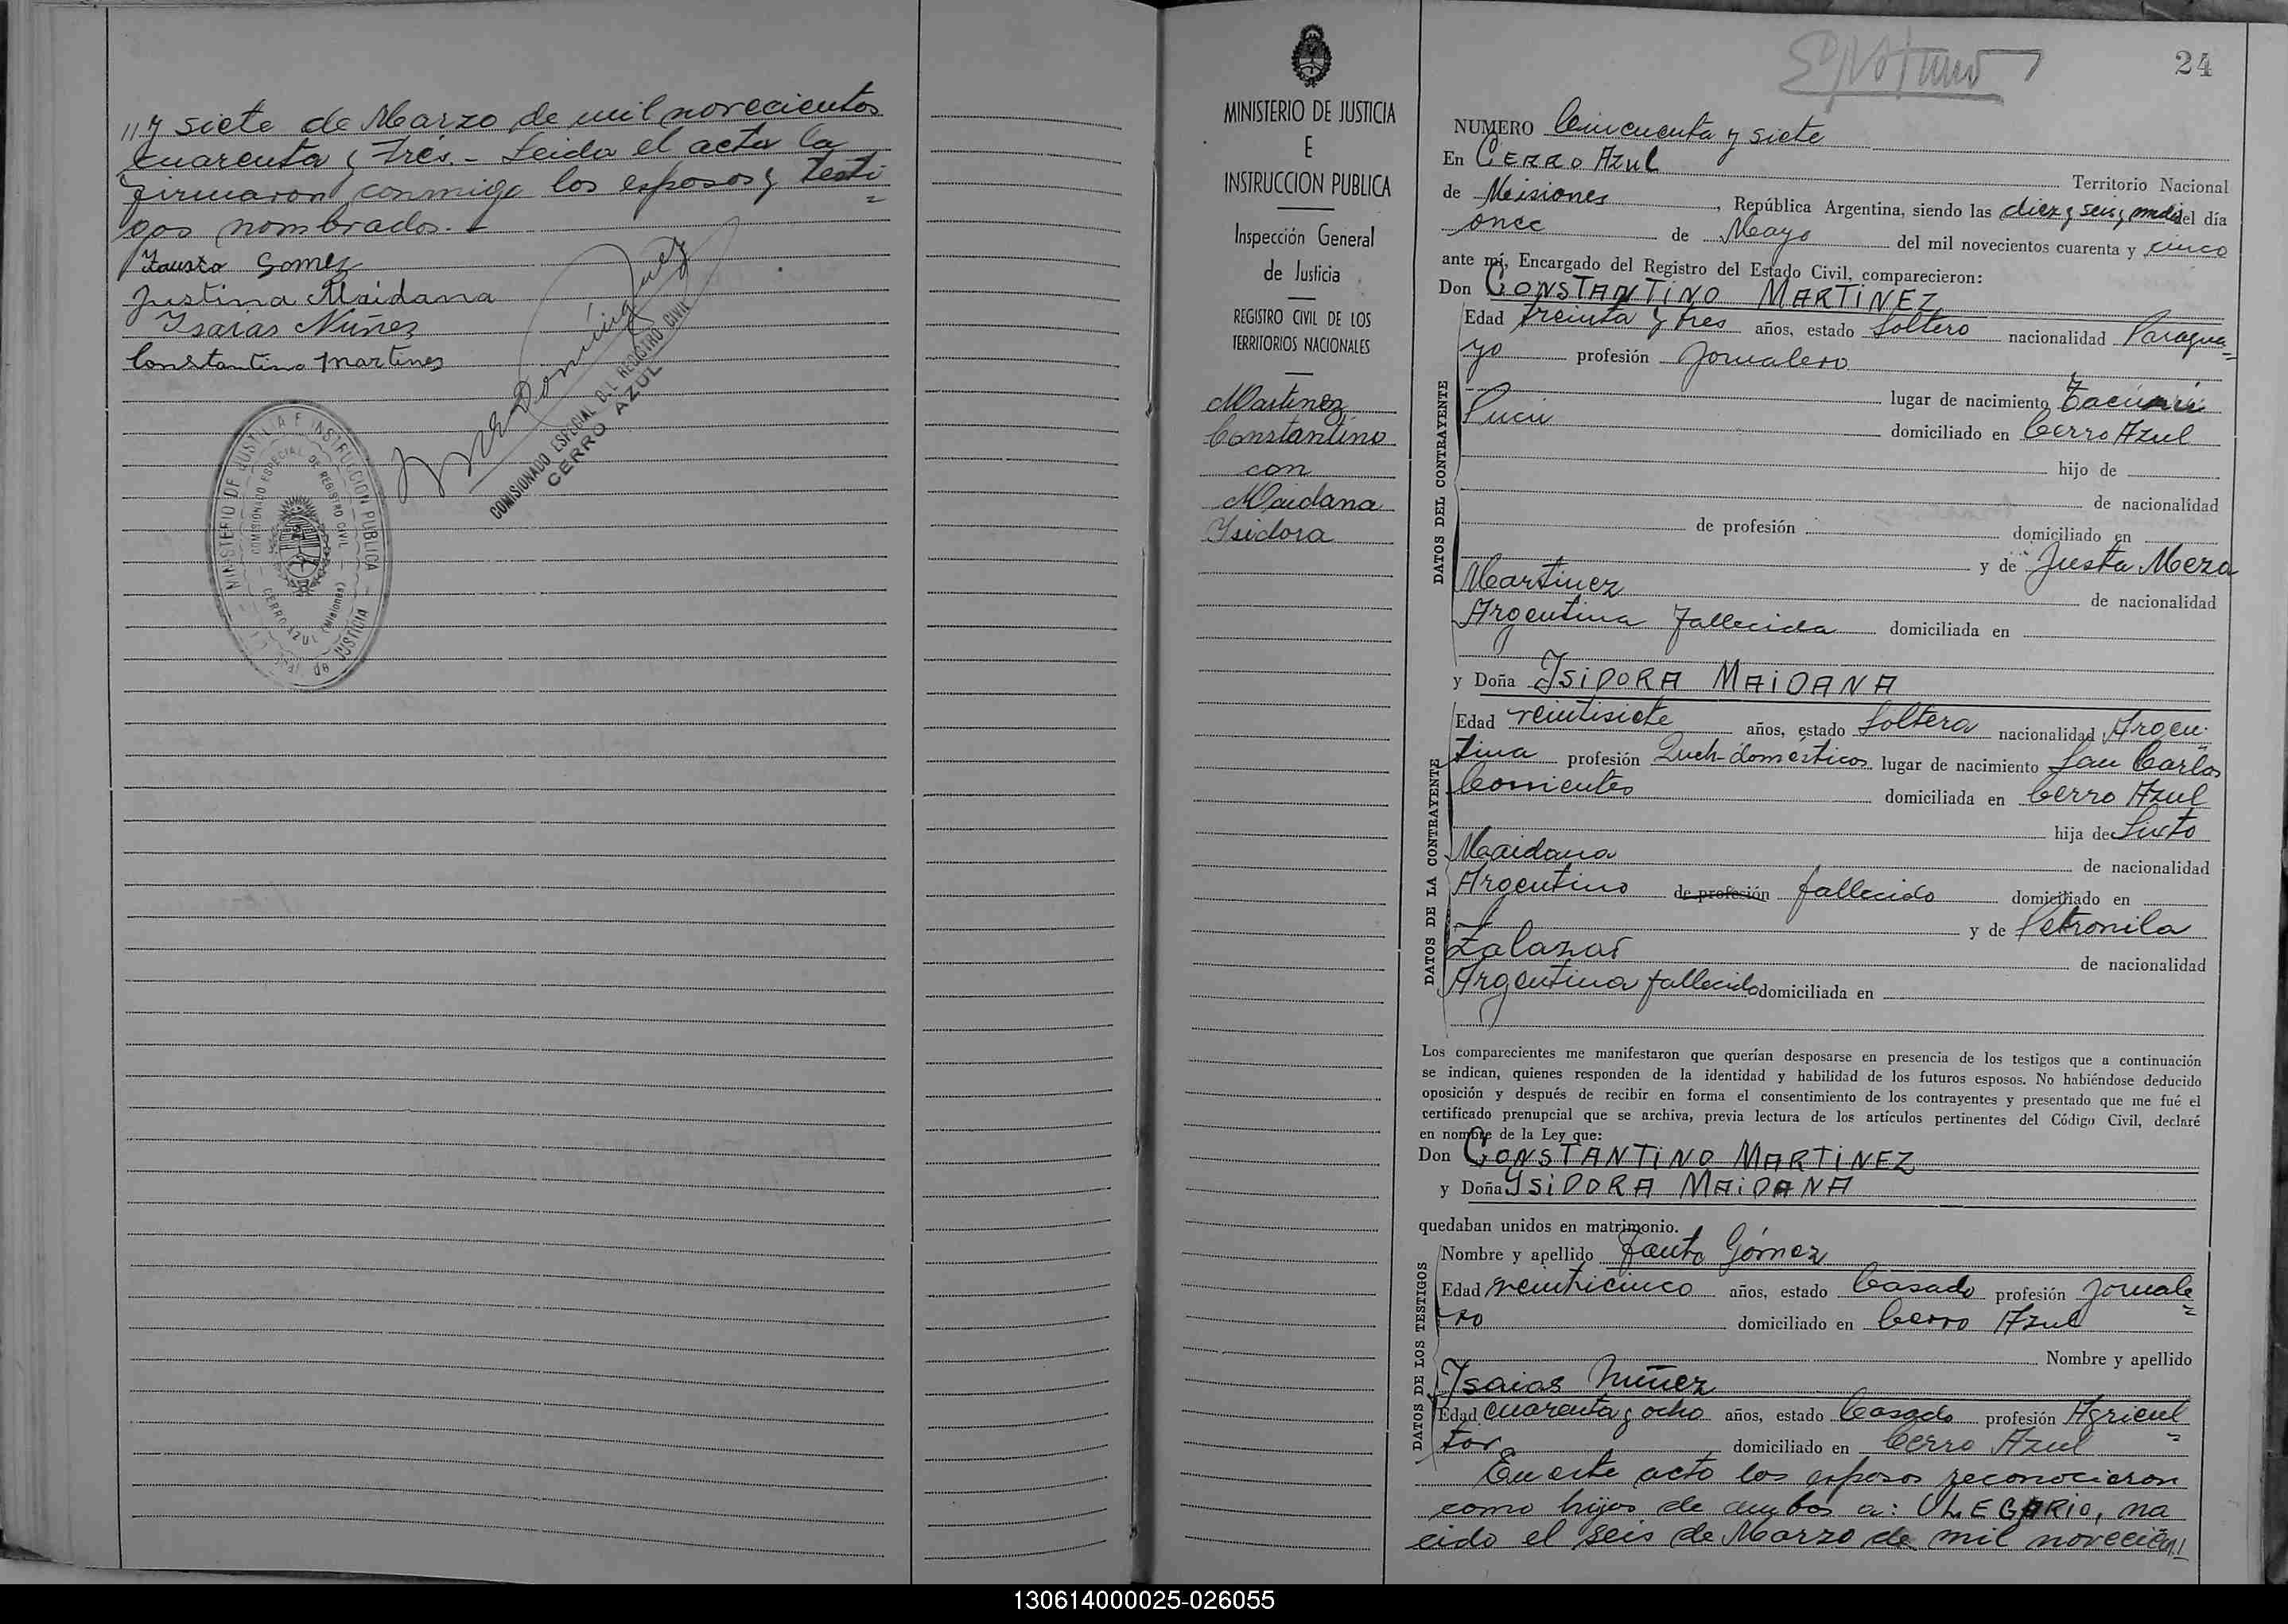 // y siete de Marzo de mil novecientos
cuarenta y tres.- Leida el acta la
firmaron conmigo los esposos y testi=
gos nombrados.-
Fausto Gomez
Justina Maidana
Isaias Nuñez
Constantino Martines
COMISIONADO ESPECIAL DEL REGISTRO CIVIL
CERRO AZUL
MINISTERIO DE JUSTICIA E INSTRUCCION PUBLICA
COMISIONADO ESPECIAL DE REGISTRO CIVIL
CERRO AZUL (Misiones)
24
MINISTERIO DE JUSTICIA
E
INSTRUCCION PUBLICA
Inspección General
de Justicia
REGISTRO CIVIL DE LOS
TERRITORIOS NACIONALES
Martinez
Constantino
con
Maidana
Isidora
NUMERO Cincuenta y siete
En CERRO AZUL Territorio Nacional
de Misiones, República Argentina, siendo las diez y seis y media del día
once de Mayo del mil novecientos cuarenta y cinco
ante mí, Encargado del Registro del Estado Civil, comparecieron:
Don CONSTANTINO MARTINEZ
DATOS DEL CONTRAYENTE
Edad treinta y tres años, estado Soltero nacionalidad Paragua=
yo profesión Jornalero
lugar de nacimiento
Pucú domiciliado en Cerro Azul
hijo de
de nacionalidad
de profesión domiciliado en
y de Justa Meza
Martinez de nacionalidad
Argentina fallecida domiciliada en
y Doña ISIDORA MAIDANA
DATOS DE LA CONTRAYENTE
Edad veintisiete años, estado Soltera nacionalidad Argen-
tina profesión Queh-domésticos lugar de nacimiento San Carlos
Corrientes domiciliada en Cerro Azul
hija de Sixto
Maidana de nacionalidad
Argentino de profesión fallecido domiciliado en
y de Petronila
Zalazar de nacionalidad
Argentina fallecida domiciliada en
Los comparecientes me manifestaron que querían desposarse en presencia de los testigos que a continuación
se indican, quienes responden de la identidad y habilidad de los futuros esposos. No habiéndose deducido
oposición y después de recibir en forma el consentimiento de los contrayentes y presentado que me fué el
certificado prenupcial que se archiva, previa lectura de los artículos pertinentes del Código Civil, declaré
en nombre de la Ley que:
Don CONSTANTINO MARTINEZ
y Doña ISIDORA MAIDANA
quedaban unidos en matrimonio.
DATOS DE LOS TESTIGOS
Nombre y apellido Fausto Gómez
Edad veinticinco años, estado Casado profesión Jornale=
ro domiciliado en Cerro Azul
Nombre y apellido
Isaias Nuñez
Edad cuarenta y ocho años, estado Casado profesión Agricul=
tor domiciliado en Cerro Azul
En este acto los esposos reconocieron
como hijos de ambos a: OLEGARIO, na
cido el seis de Marzo de mil novecien//
130614000025-026055